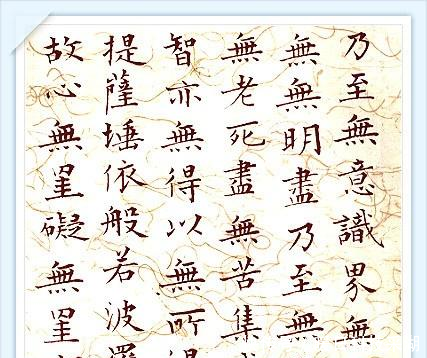 乃至無意識界無
無無明盡乃至無
無老死盡無苦集
智亦無得以無所
提薩埵依般若波
故心無罣礙無罣